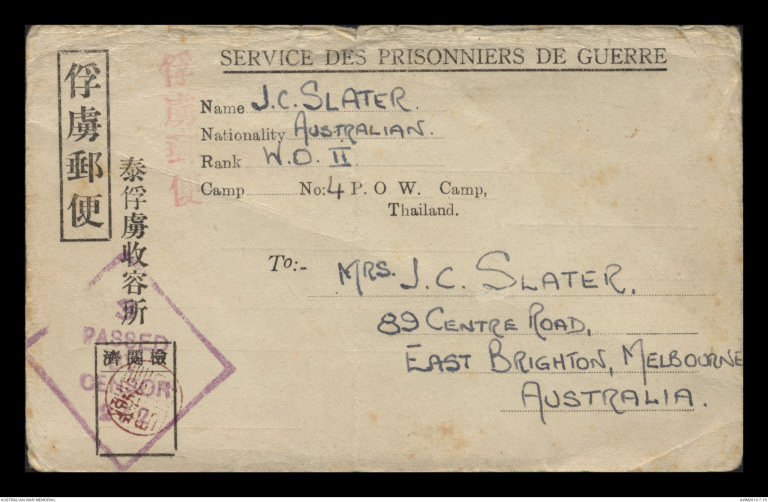 SERVICE DES PRISONNIERS DE GUERRE
俘虜郵便
俘虜郵便
泰俘虜收容所
Name J.C. SLATER.
Nationality AUSTRALIAN.
Rank W.O. II
Camp No: 4 P. O W. Camp,
Thailand.
To:-
MRS. J. C. SLATER,
89 CENTRE ROAD,
EAST BRIGHTON, MELBOURNE
AUSTRALIA.
PASSED
CENSOR
檢閱濟
AUSTRALIAN WAR MEMORIAL